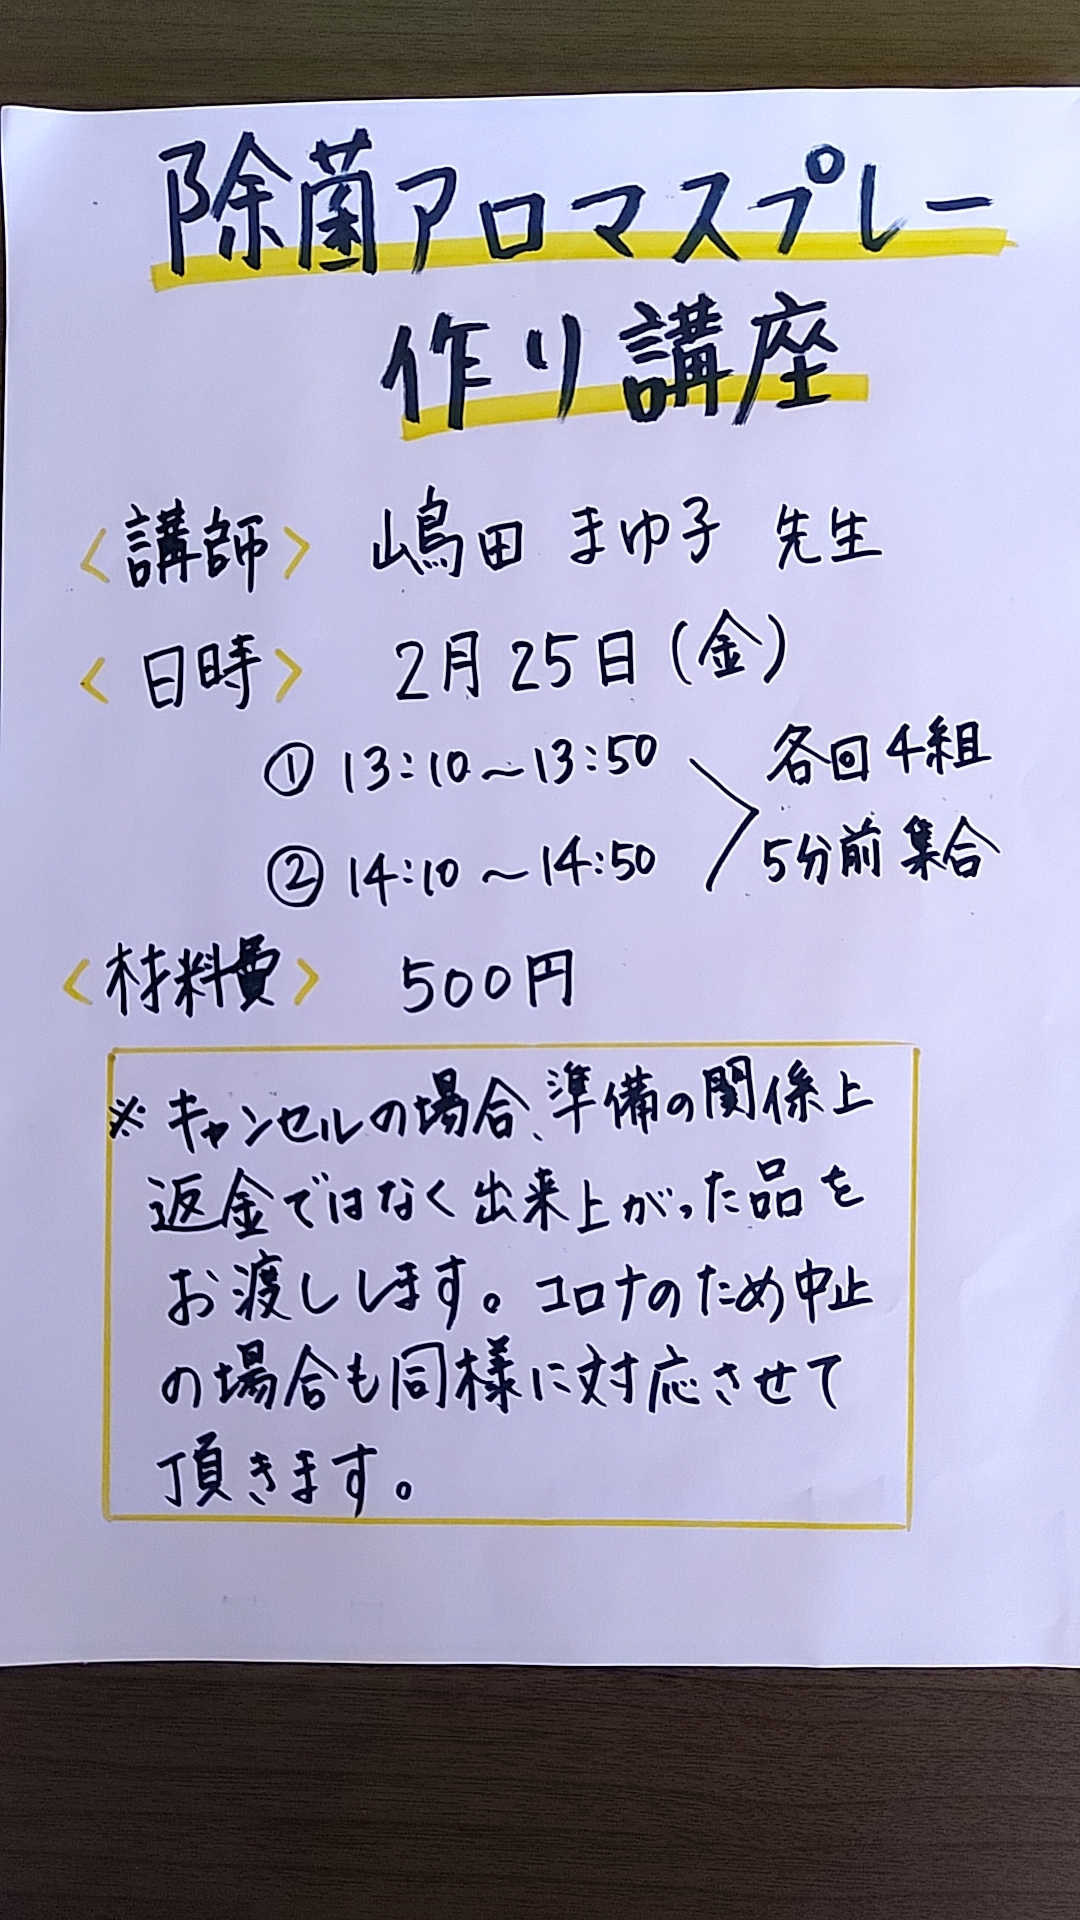 除菌アロマスプレー
作り講座
<講師> 嶋田 まゆ子 先生
<日時> 2月25日(金)
① 13:10～13:50 各回4組
② 14:10～14:50 5分前集合
<材料費> 500円
※キャンセルの場合、準備の関係上
返金ではなく出来上がった品を
お渡しします。コロナのため中止
の場合も同様に対応させて
頂きます。